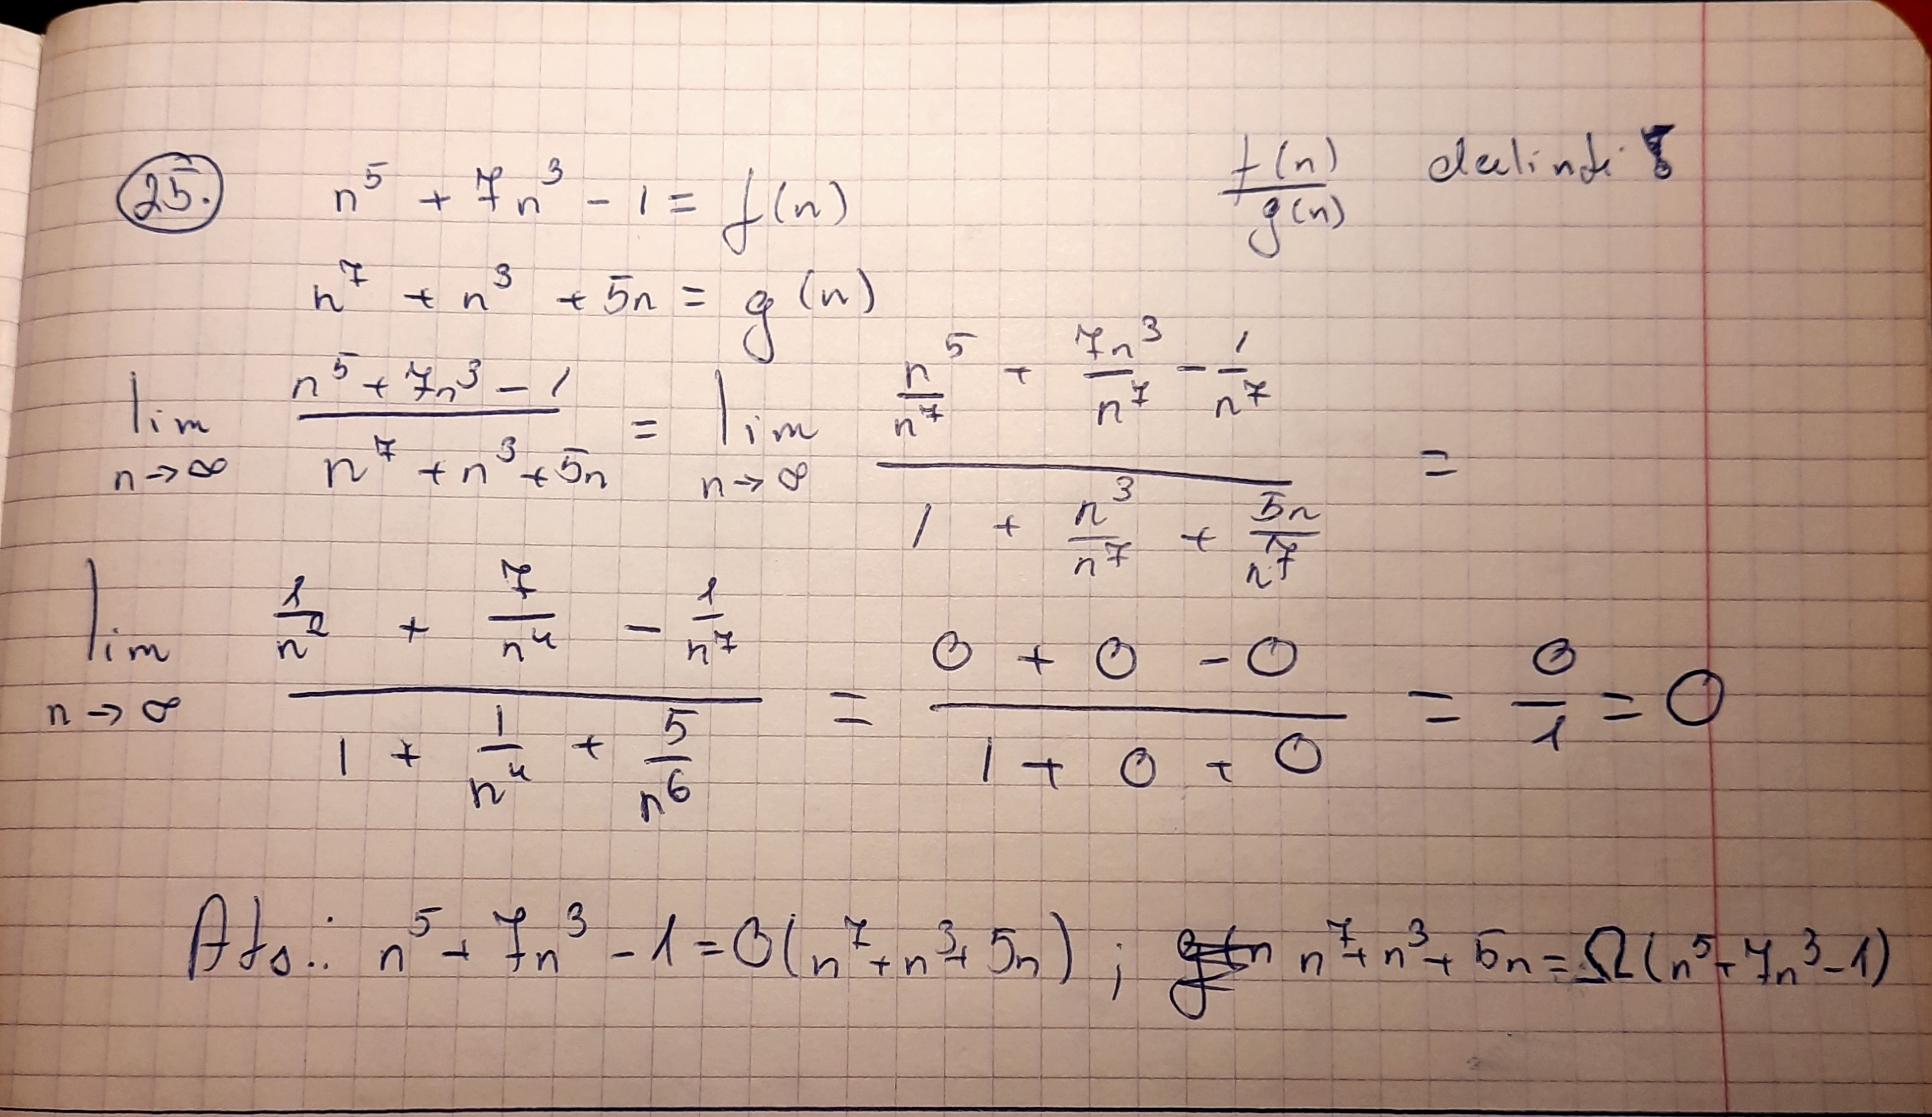 25. n⁵ + 7n³ - 1 = f(n)
f(n)/g(n)
n⁷ + n³ + 5n = g(n)
lim n→∞ (n⁵ + 7n³ - 1)/(n⁷ + n³ + 5n) = lim n→∞ (n⁵/n⁷ + 7n³/n⁷ - 1/n⁷)/(1 + n³/n⁷ + 5n/n⁷) =
lim n→∞ (1/n² + 7/n⁴ - 1/n⁷)/(1 + 1/n⁴ + 5/n⁶) = (0 + 0 - 0)/(1 + 0 + 0) = 0/1 = 0
Ats.: n⁵ + 7n³ - 1 = O(n⁷ + n³ + 5n) ; n⁷ + n³ + 5n = Ω(n⁵ + 7n³ - 1)